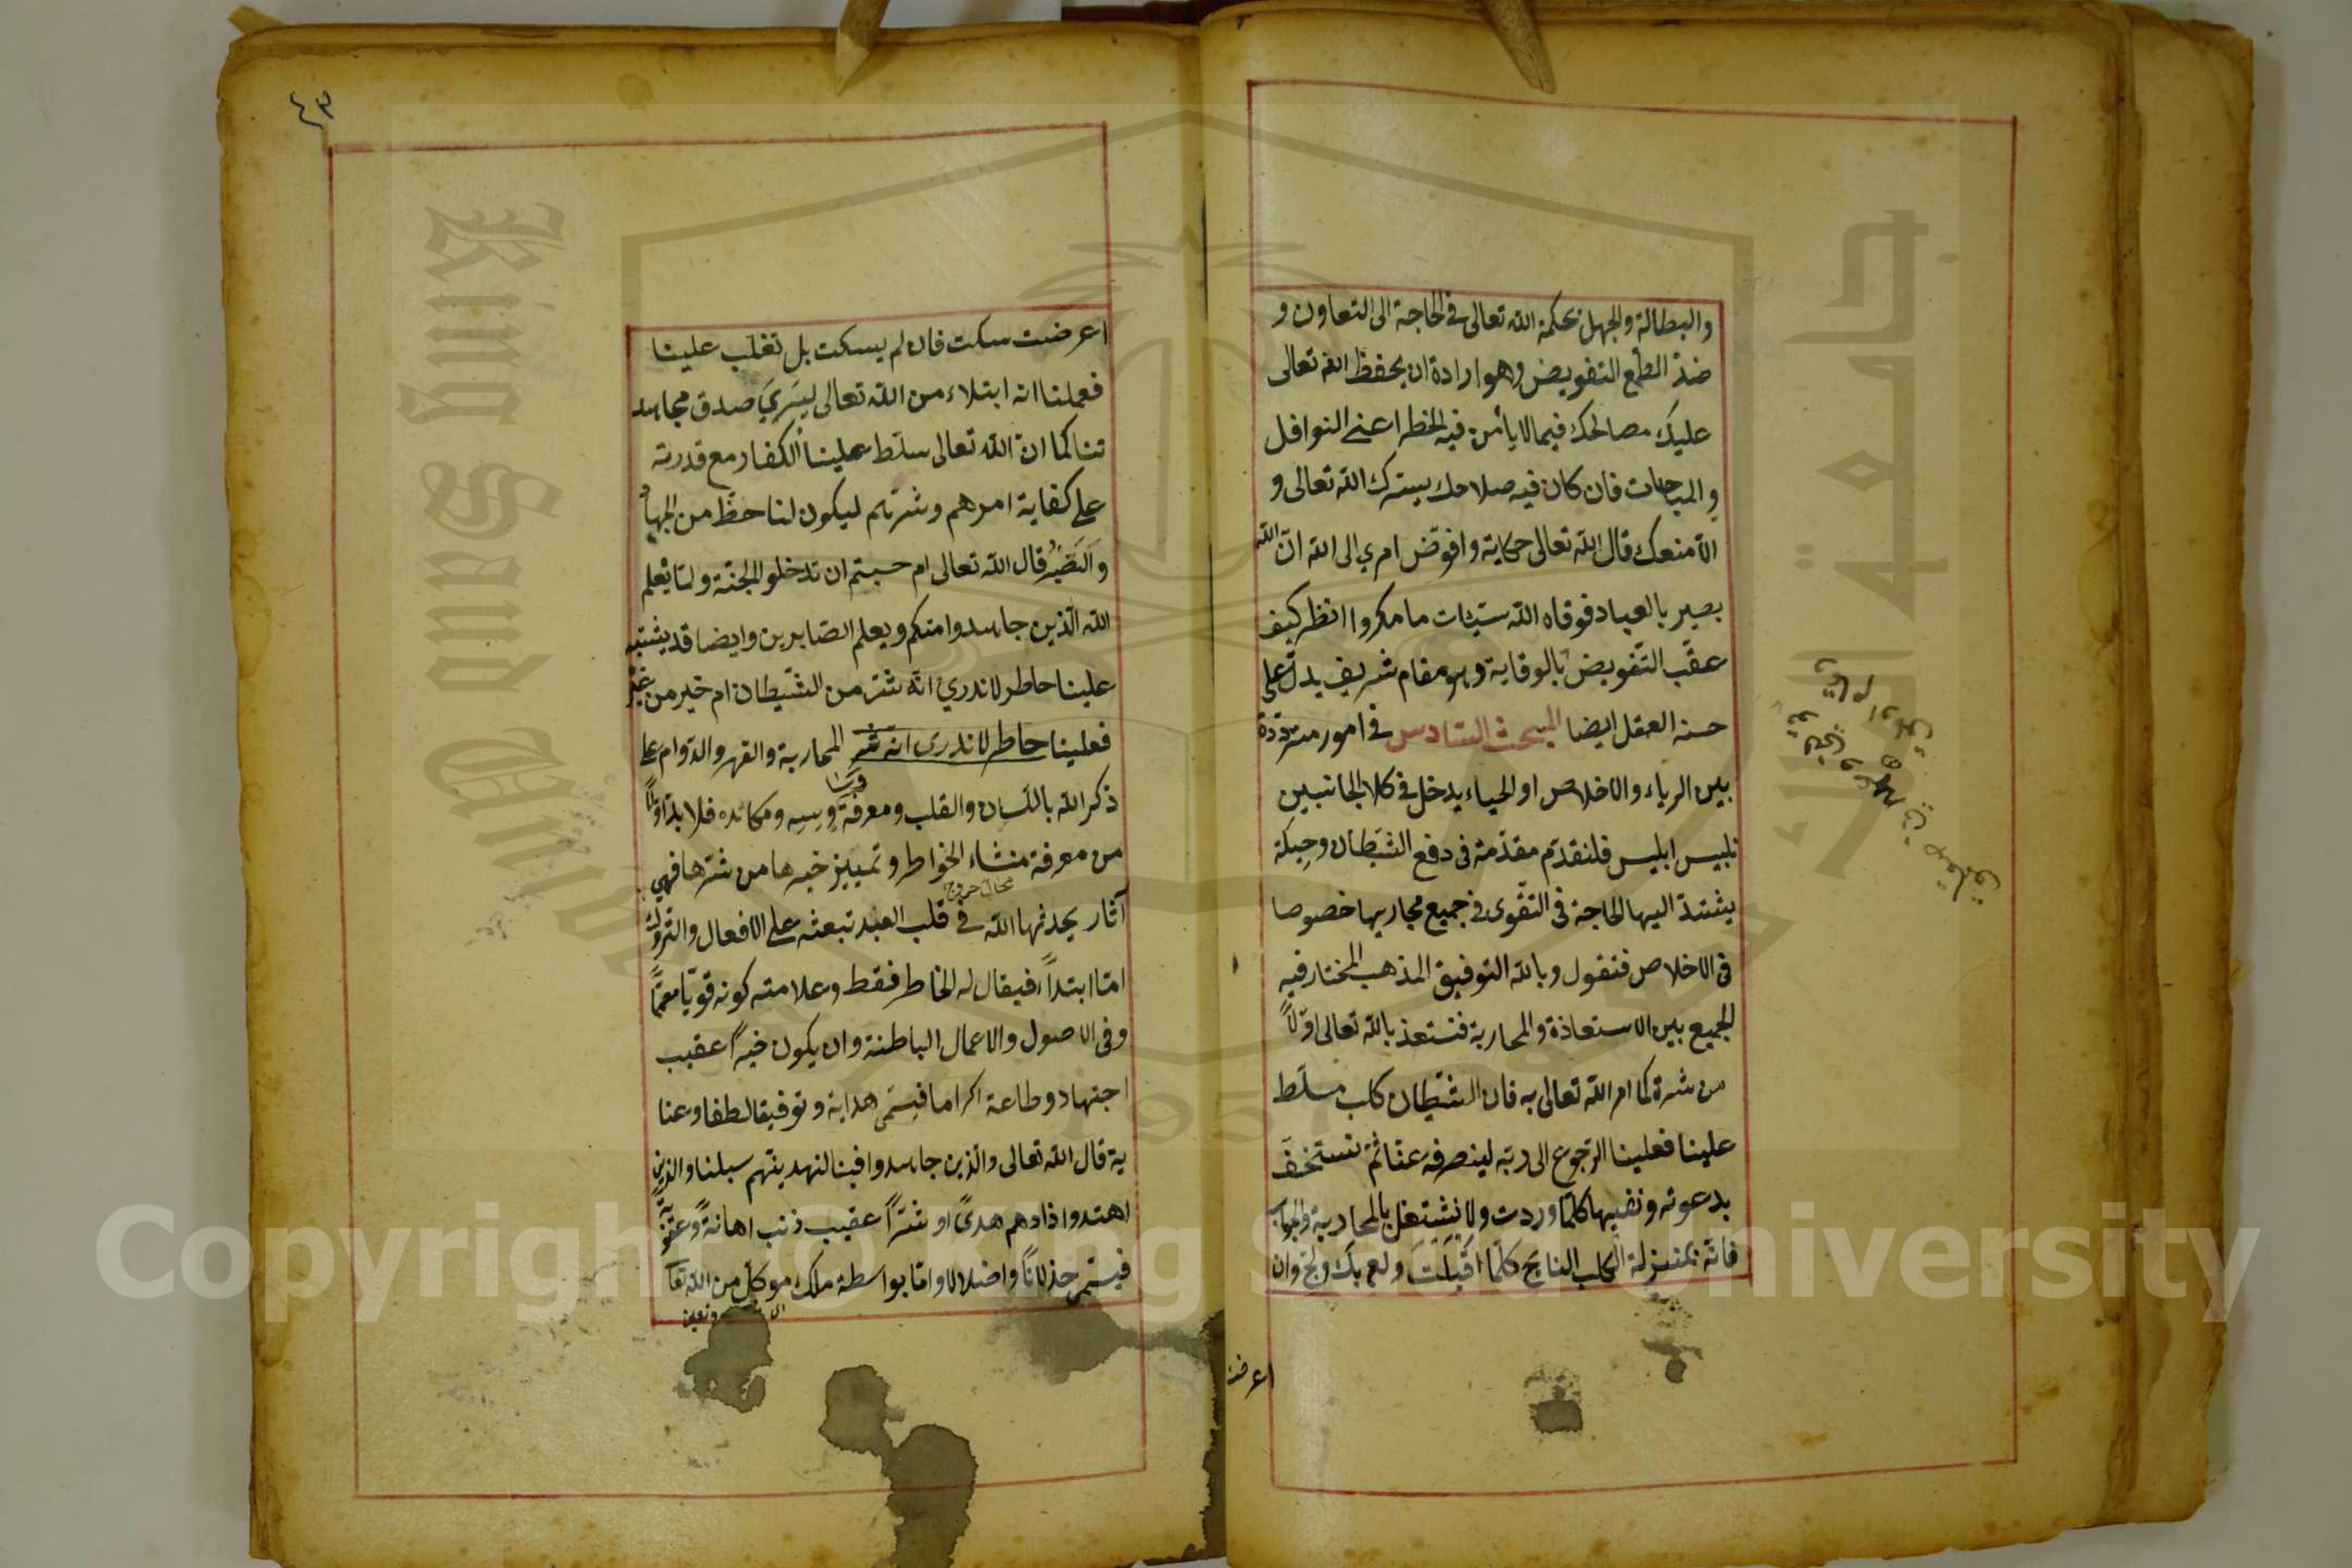 والبطالة والجهل بحكمة الله تعالى في الحاجة الى التعاون و
ضد الطمع التفويض وهو ارادة ان يحفظ الله تعالى
عليك مصالحك فيما لا يأمن فيه الخطر اعنى النوافل
والمباحات فان كان فيه صلاحك يسترك الله تعالى و
الا منعك قال الله تعالى حكاية وافوّض امري الى الله انّ الله
بصير بالعباد فوقاه الله سيئات ما مكروا انظر كيف
عقّب التّفويض بالوقاية وهو مقام شريف يدلّ على
حسنه العقل ايضا المبحث السّادس في امور متردّدة
بين الرياء والاخلاص او الحياء يدخل في كلا الجانبين
تلبيس ابليس فلنقدّم مقدّمة فى دفع الشّيطان وحيلة
يشتدّ اليها الحاجة في التقوى في جميع مجاريها خصوصا
فى الاخلاص فنقول وبالله التوفيق المذهب المختار فيه
الجمع بين الاستعاذة والمحاربة فنستعذ بالله تعالى اوّلاً
من شره كما امر الله تعالى به فان الشّيطان كلب مسلّط
علينا فعلينا الرّجوع الى ربّه ليصرفه عنّا ثمّ نستخفّ
بدعوته ونفيها كلّما وردت ولا نشتغل بالمحاربة والجواب
فانّه بمنزلة الكلب النابح كلّما اقبلت ولع بك ولجّ وان
اعرضت
٤٣
اعرضت سكت فان لم يسكت بل تغلّب علينا
فعلمنا انه ابتلاء من الله تعالى ليرى صدق مجاهد
تنا كما انّ الله تعالى سلّط علينا الكفار مع قدرته
على كفاية امرهم وشرهم ليكون لنا حظّ من الجهاد
والصبر قال الله تعالى ام حسبتم ان تدخلوا الجنّة ولمّا يعلم
الله الّذين جاهدوا منكم ويعلم الصّابرين وايضا قد يشتبه
علينا خاطر لا ندري انّه شرّ من الشّيطان ام خير من غيره
فعلينا خاطر لا ندرى انه شر المحاربة والقهر والدّوام على
ذكر الله باللّسان والقلب ومعرفة وساوسه ومكائده فلا بدّ اوّلاً
من معرفة منشاء الخواطر وتمييز خيرها من شرّها فهي
آثار يحدثها الله في قلب العبد تبعثه على الافعال والتروك
امّا ابتداءً فيقال له الخاطر فقط وعلامته كونه قويّا مصمّماً
وفى الاصول والاعمال الباطنة وان يكون خيراً عقيب
اجتهاد وطاعة اكراما فيسمّى هداية وتوفيقا ولطفا وعنا
ية قال الله تعالى والّذين جاهدوا فينا لنهدينّهم سبلنا والذين
اهتدوا زادهم هدىً او شرّاً عقيب ذنب اهانةً وعقوبةً
فيسمّى خذلاناً واضلالا وامّا بواسطة ملك موكّل من الله تعا